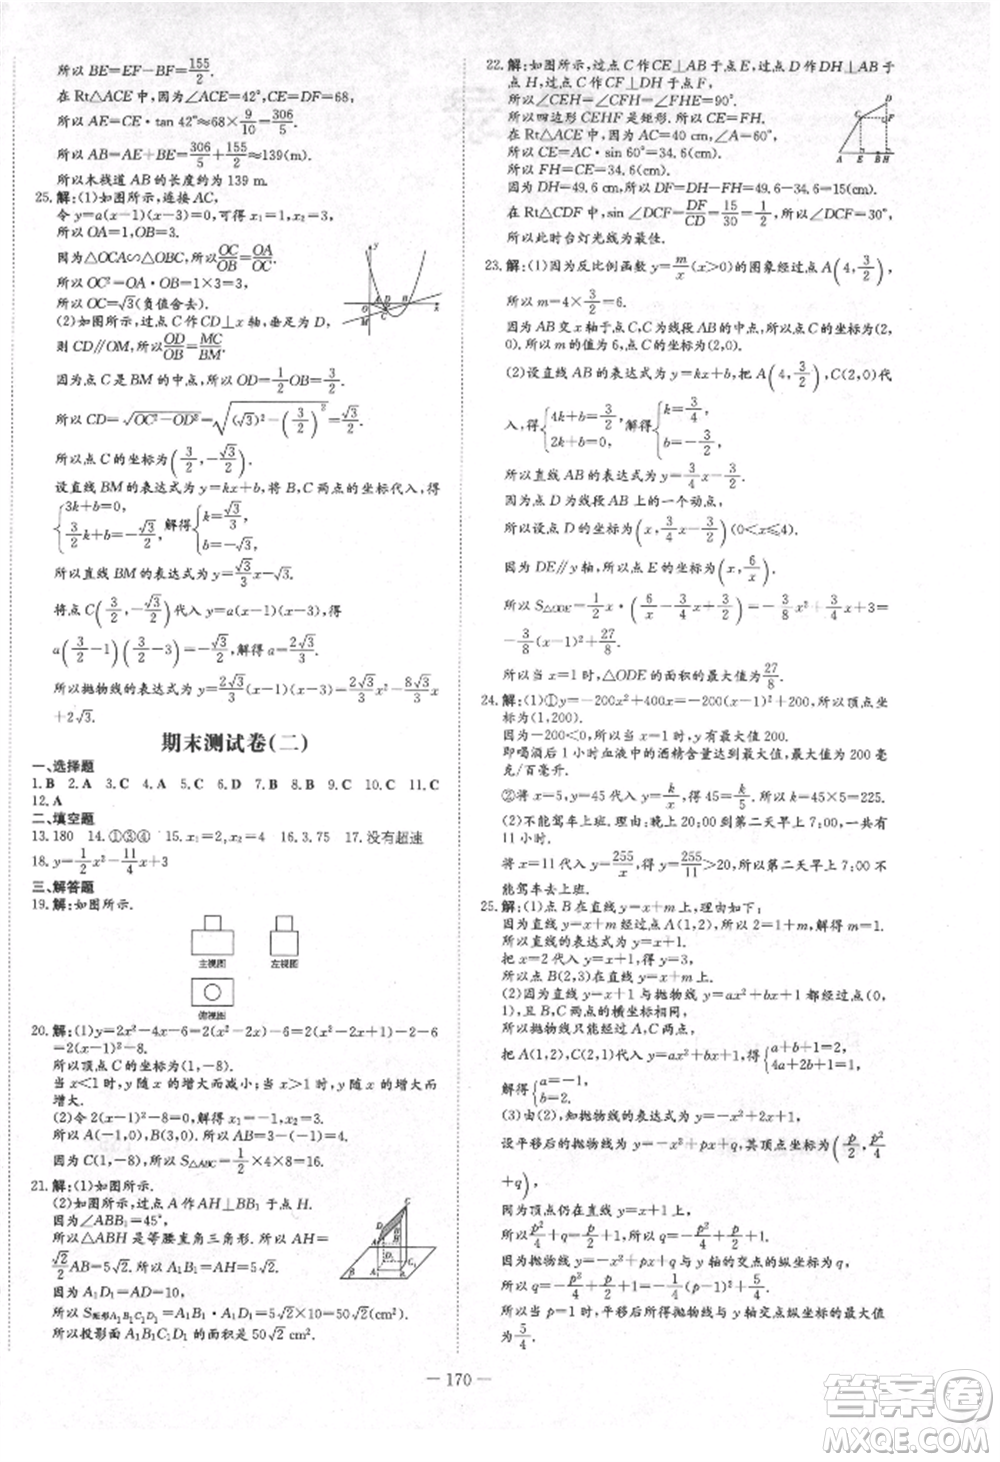 所以 BE=EF-BF=155/2.
在 Rt△ACE 中,因为∠ACE=42°,CE=DF=68,
所以 AE=CE·tan 42°≈68×9/10=306/5.
所以 AB=AE+BE=306/5+155/2≈139(m).
所以木栈道 AB 的长度约为 139 m.
25.解:(1)如图所示,连接 AC,
令 y=a(x-1)(x-3)=0,可得 x₁=1,x₂=3.
所以 OA=1,OB=3.
因为△OCA∽△OBC,所以 OC/OB=OA/OC.
所以 OC²=OA·OB=1×3=3.
所以 OC=√3(负值舍去).
(2)如图所示,过点 C 作 CD⊥x 轴,垂足为 D,
则 CD∥OM,所以 OD/OB=MC/BM.
因为点 C 是 BM 的中点,所以 OD=1/2 OB=3/2.
所以 CD=√(OC²-OD²)=√((√3)²-(3/2)²)=√3/2.
所以点 C 的坐标为(3/2,-√3/2).
设直线 BM 的表达式为 y=kx+b,将 B,C 两点的坐标代入,得
{3k+b=0, 3/2k+b=-√3/2, 解得{k=√3/3, b=-√3.
所以直线 BM 的表达式为 y=√3/3x-√3.
将点 C(3/2,-√3/2)代入 y=a(x-1)(x-3),得
a(3/2-1)(3/2-3)=-√3/2,解得 a=2√3/3.
所以抛物线的表达式为 y=2√3/3(x-1)(x-3)=2√3/3x²-8√3/3x
+2√3.
期末测试卷(二)
一、选择题
1.B 2.A 3.C 4.A 5.C 6.D 7.B 8.B 9.D 10.B 11.C
12.A
二、填空题
13.180 14.①③④ 15.x₁=2,x₂=4 16.3.75 17.没有超速
18.y=1/2x²-11/4x+3
三、解答题
19.解:如图所示.
主视图 左视图
俯视图
20.解:(1)y=2x²-4x-6=2(x²-2x)-6=2(x²-2x+1)-2-6
=2(x-1)²-8.
所以顶点 C 的坐标为(1,-8).
当 x<1 时,y 随 x 的增大而减小;当 x>1 时,y 随 x 的增大而
增大.
(2)令 2(x-1)²-8=0,解得 x₁=-1,x₂=3.
所以 A(-1,0),B(3,0).所以 AB=3-(-1)=4.
因为 C(1,-8),所以 S△ABC=1/2×4×8=16.
21.解:(1)如图所示.
(2)如图所示,过点 A 作 AH⊥BB₁ 于点 H.
因为∠ABB₁=45°,
所以△ABH 是等腰直角三角形.所以 AH=
√2/2AB=5√2.所以 A₁B₁=AH=5√2.
因为 A₁D₁=AD=10,
所以 S矩形A₁B₁C₁D₁=A₁B₁·A₁D₁=5√2×10=50√2(cm²).
所以投影面 A₁B₁C₁D₁ 的面积是 50√2 cm².
22.解:如图所示,过点 C 作 CE⊥AB 于点 E,过点 D 作 DH⊥AB
于点 H,过点 C 作 CF⊥DH 于点 F,
所以∠CEH=∠CFH=∠FHE=90°.
所以四边形 CEHF 是矩形.所以 CE=FH.
因为在 Rt△ACE 中,AC=40 cm,∠A=60°,
所以 CE=AC·sin 60°≈34.6(cm).
所以 FH=CE=34.6(cm).
因为 DH=49.6 cm,所以 DF=DH-FH=49.6-34.6=15(cm).在
Rt△CDF 中,sin∠DCF=DF/CD=15/30=1/2,所以∠DCF=30°,
所以此时台灯光线为最佳.
23.解:(1)因为反比例函数 y=m/x(x>0)的图象经过点 A(4,3/2),
所以 m=4×3/2=6.
因为 AB 交 x 轴于点 C,点 C 为线段 AB 的中点,所以 C(2,
0).所以 m 的值为 6,点 C 的坐标为(2,0).
(2)设直线 AB 的表达式为 y=kx+b,把 A(4,3/2),C(2,0)代
入,得{4k+b=3/2, 2k+b=0, 解得{k=3/4, b=-3/2.
所以直线 AB 的表达式为 y=3/4x-3/2.
因为点 D 为线段 AB 上的一个动点,
所以设点 D 的坐标为(x,3/4x-3/2)(0<x≤4).
因为 DE∥y 轴,所以点 E 的坐标为(x,6/x).
所以 S△ODE=1/2x·(6/x-3/4x+3/2)=-3/8x²+3/4x+3=
-3/8(x-1)²+27/8.
所以当 x=1 时,△ODE 的面积的最大值为27/8.
24.解:(1)①y=-200x²+400x=-200(x-1)²+200,所以顶点坐
标为(1,200).
因为-200<0,所以当 x=1 时,y 有最大值,最大值为 200,
即喝酒后 1 小时血液中的酒精含量达到最大值,最大值为 200 毫
克/百毫升.
②将 x=5,y=45 代入 y=k/x,得 45=k/5.所以 k=45×5=225.
(2)不能驾车上班.理由:晚上 20:00 到第二天早上 7:00,一共有
11 小时.
将 x=11 代入 y=255/x,得 y=255/11>20,所以第二天早上 7:00 不
能驾车去上班.
25.解:(1)点 B 在直线 y=x+m 上,理由如下:
因为直线 y=x+m 经过点 A(1,2),所以 2=1+m.解得 m=1.
所以直线的表达式为 y=x+1.
把 x=2 代入 y=x+1,得 y=3,
所以点 B(2,3)在直线 y=x+m 上.
(2)因为直线 y=x+1 与抛物线 y=ax²+bx+1 都经过点(0,
1),且 B,C 两点的横坐标相同,
所以抛物线只能经过 A,C 两点,
把 A(1,2),C(2,1)代入 y=ax²+bx+1,得{a+b+1=2, 4a+2b+1=1,
解得{a=-1, b=2.
(3)由(2),知抛物线的表达式为 y=-x²+2x+1,
设平移后的抛物线为 y=-x²+px+q,其顶点坐标为(p/2,p²/4
+q),
因为顶点仍在直线 y=x+1 上,所以p²/4+q=p/2+1.
所以 q=-p²/4+p/2+1.
因为抛物线 y=-x²+px+q 与 y 轴的交点的纵坐标为 q,
所以 q=-p²/4+p/2+1=-1/4(p-1)²+5/4.
所以当 p=1 时,平移后所得抛物线与 y 轴交点纵坐标的最大值
为5/4.
— 170 —
答案卷
MXQE.COM